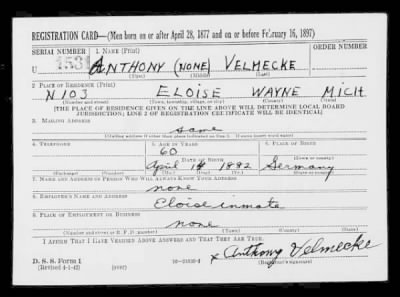 REGISTRATION CARD—(Men born on or after April 28, 1877 and on or before February 16, 1897)
SERIAL NUMBER 1. NAME (Print) ORDER NUMBER
U 1531 ANTHONY (NONE) VELMECKE
(First) (Middle) (Last)
2. PLACE OF RESIDENCE (Print)
N103 ELOISE WAYNE MICH
(Number and street) (Town, township, village, or city) (County) (State)
[THE PLACE OF RESIDENCE GIVEN ON THE LINE ABOVE WILL DETERMINE LOCAL BOARD
JURISDICTION; LINE 2 OF REGISTRATION CERTIFICATE WILL BE IDENTICAL]
3. MAILING ADDRESS
same
[Mailing address if other than place indicated on line 2. If same insert word same]
4. TELEPHONE 5. AGE IN YEARS 6. PLACE OF BIRTH
60
DATE OF BIRTH (Town or county)
April 14 1882 Germany
(Exchange) (Number) (Mo.) (Day) (Yr.) (State or country)
7. NAME AND ADDRESS OF PERSON WHO WILL ALWAYS KNOW YOUR ADDRESS
none
8. EMPLOYER'S NAME AND ADDRESS
Eloise inmate
9. PLACE OF EMPLOYMENT OR BUSINESS
none
(Number and street or R. F. D. number) (Town) (County) (State)
I AFFIRM THAT I HAVE VERIFIED ABOVE ANSWERS AND THAT THEY ARE TRUE.
D. S. S. Form 1 x Anthony Velmecke
(Revised 4-1-42) (over) (Registrant's signature)